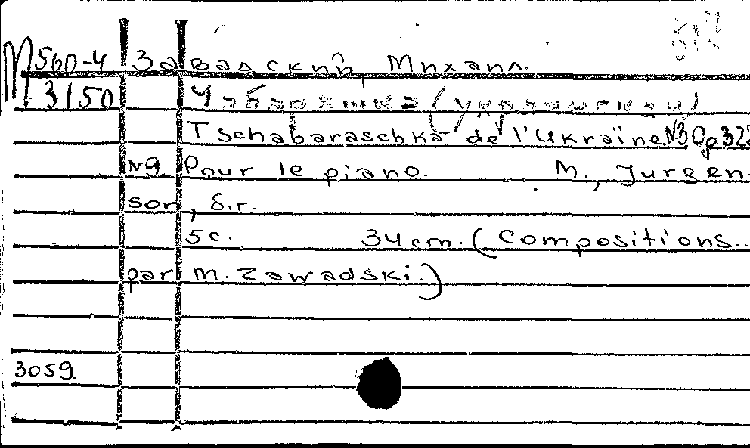 М560-4 Завадский, Михаил.
3150 Чабарашка (украинская)
Tschabaraschka de l'Ukraïne N3 Op 325
N9 Pour le piano. М., Jurgen-
son, s.r.
5с. 34cm. (Compositions..
par M. Zawadski.)
3059